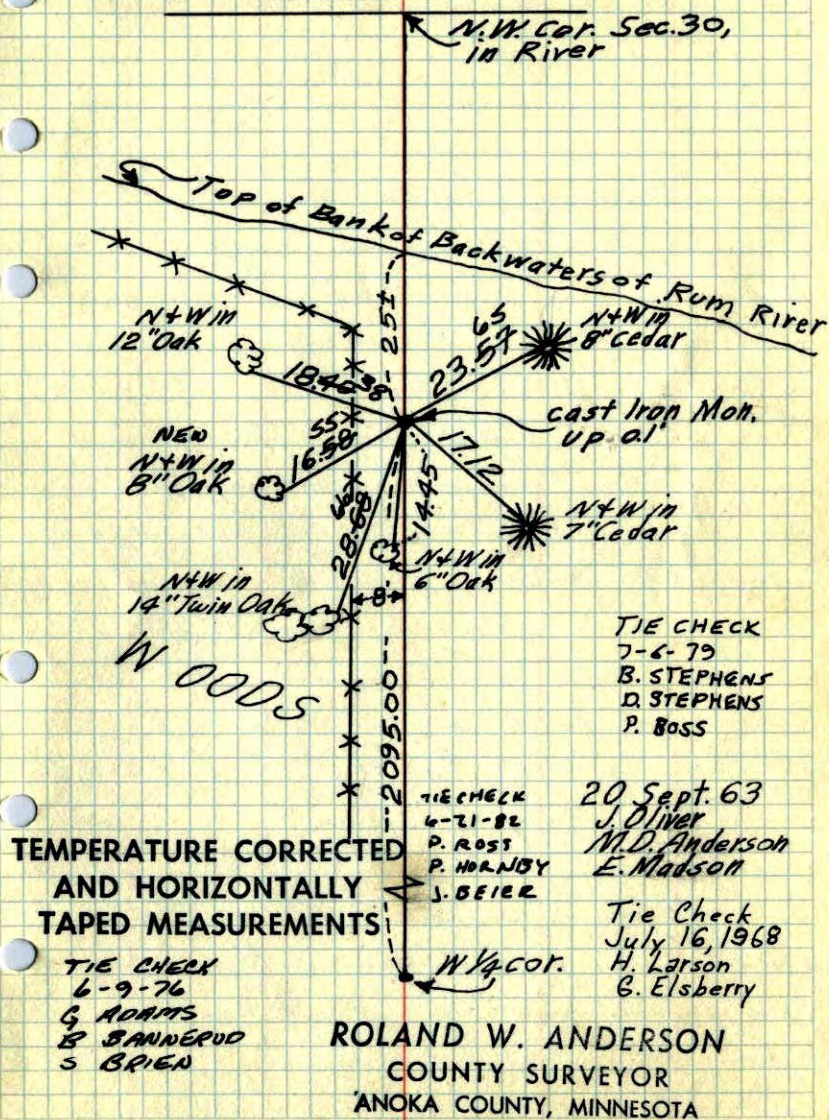 N.W. Cor. Sec. 30,
in River
Top of Bank of Backwaters of Rum River
25±
N+W in
12" Oak
18.40 38
65
23.57
N+W in
8" Cedar
cast Iron Mon.
up 0.1'
NEW
N+W in
8" Oak
55
16.58
17.12
14.45
N+W in
7" Cedar
66
28.68
N+W in
6" Oak
N+W in
14" Twin Oak
8
WOODS
2095.00
TIE CHECK
7-6-79
B. STEPHENS
D. STEPHENS
P. ROSS
TIE CHECK
6-21-82
P. ROSS
P. HORNBY
J. BEIER
20 Sept. 63
J. Oliver
M.D. Anderson
E. Madson
TEMPERATURE CORRECTED
AND HORIZONTALLY
TAPED MEASUREMENTS
Tie Check
July 16, 1968
H. Larson
G. Elsberry
TIE CHECK
6-9-76
G ADAMS
B BANNERUD
S BRIEN
W 1/4 cor.
ROLAND W. ANDERSON
COUNTY SURVEYOR
ANOKA COUNTY, MINNESOTA